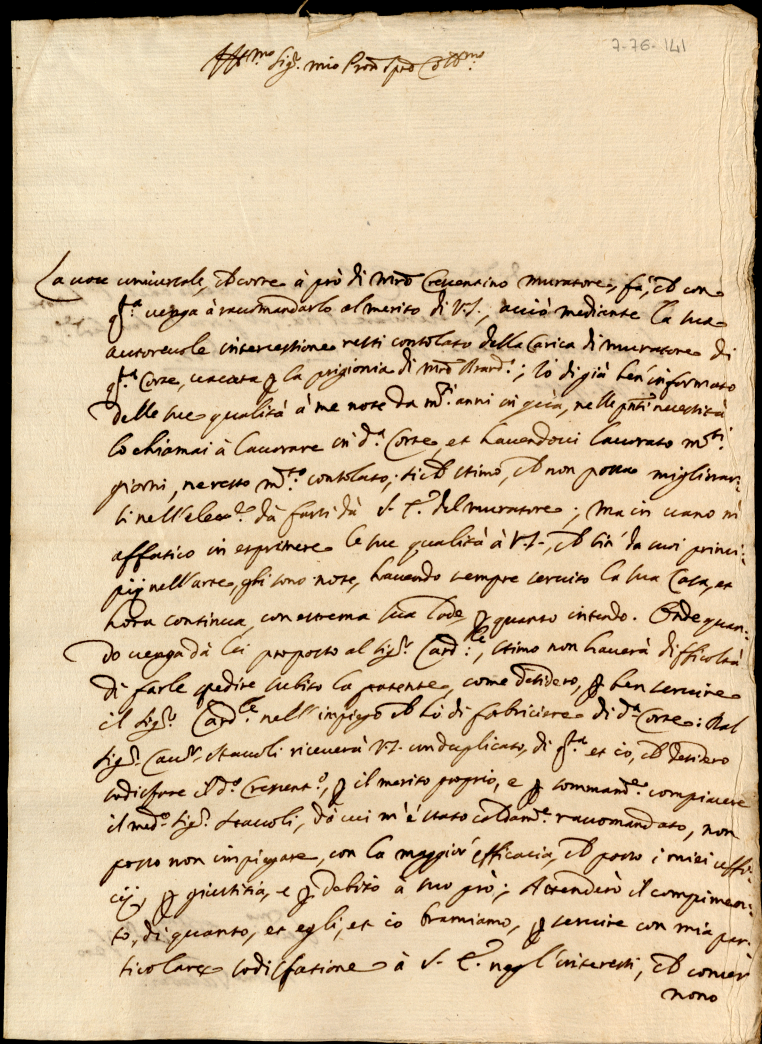 7-76-141
Ill.mo Sig.r mio Pron Sing.
La voce universale, ch corre à prò di Mrò Cressentino muratore, fà, ch con
q.ta venga à racomandarlo al merito di V.S., acciò mediante la sua
autorevole intercessione resti consolato della Carica di muratore di
q.ta Corte, vacata p la prigionia di Mrò Brard.o; Io di già ben informato
delle sue qualità à me note da m.ti anni in quà, nelle pnti necessità
lo chiamai à lavorare in d.a Corte, et havendovi lavorato m.ti
giorni, ne resto m.to consolato, sich stimo, ch non possa migliorar:
si nell'elez.e da farsi dà S. E. del muratore; ma in vano m
affatico in esprimere le sue qualità à V.S., ch sin' da suoi princi:
pij nell'arte, gli sono note, havendo sempre servito la sua Casa, et
hora continua, con estrema sua lode p quanto intendo. Onde quan:
do venga dà lei proposto al Sig.r Card.le, stimo non haverà difficoltà
di farle spedire subito la patente, come desidero, p ben servire
il Sig.r Card.le nell'impiego ch hò di fabriciere di d.a Corte: Dal
Sig.r Cav.r Staccoli riceverà V.S. un duplicato, di q.ta et io, ch desidero
sodisfare il d.o Cressent.o, p il merito proprio, e p sommam.e compiacere
il med.o Sig.r Staccoli, dà cui m'è stato caldam.e racomandato, non
posso non impiegare, con la maggior' efficacia, ch posso i miei uffi:
cij, p giustitia, e p debito à suo prò; Attenderò il compimen:
to, di quanto, et egli, et io bramiamo, p servire con mia par:
ticolare sodisfatione à S. E. negl'interessi, ch conver
nono